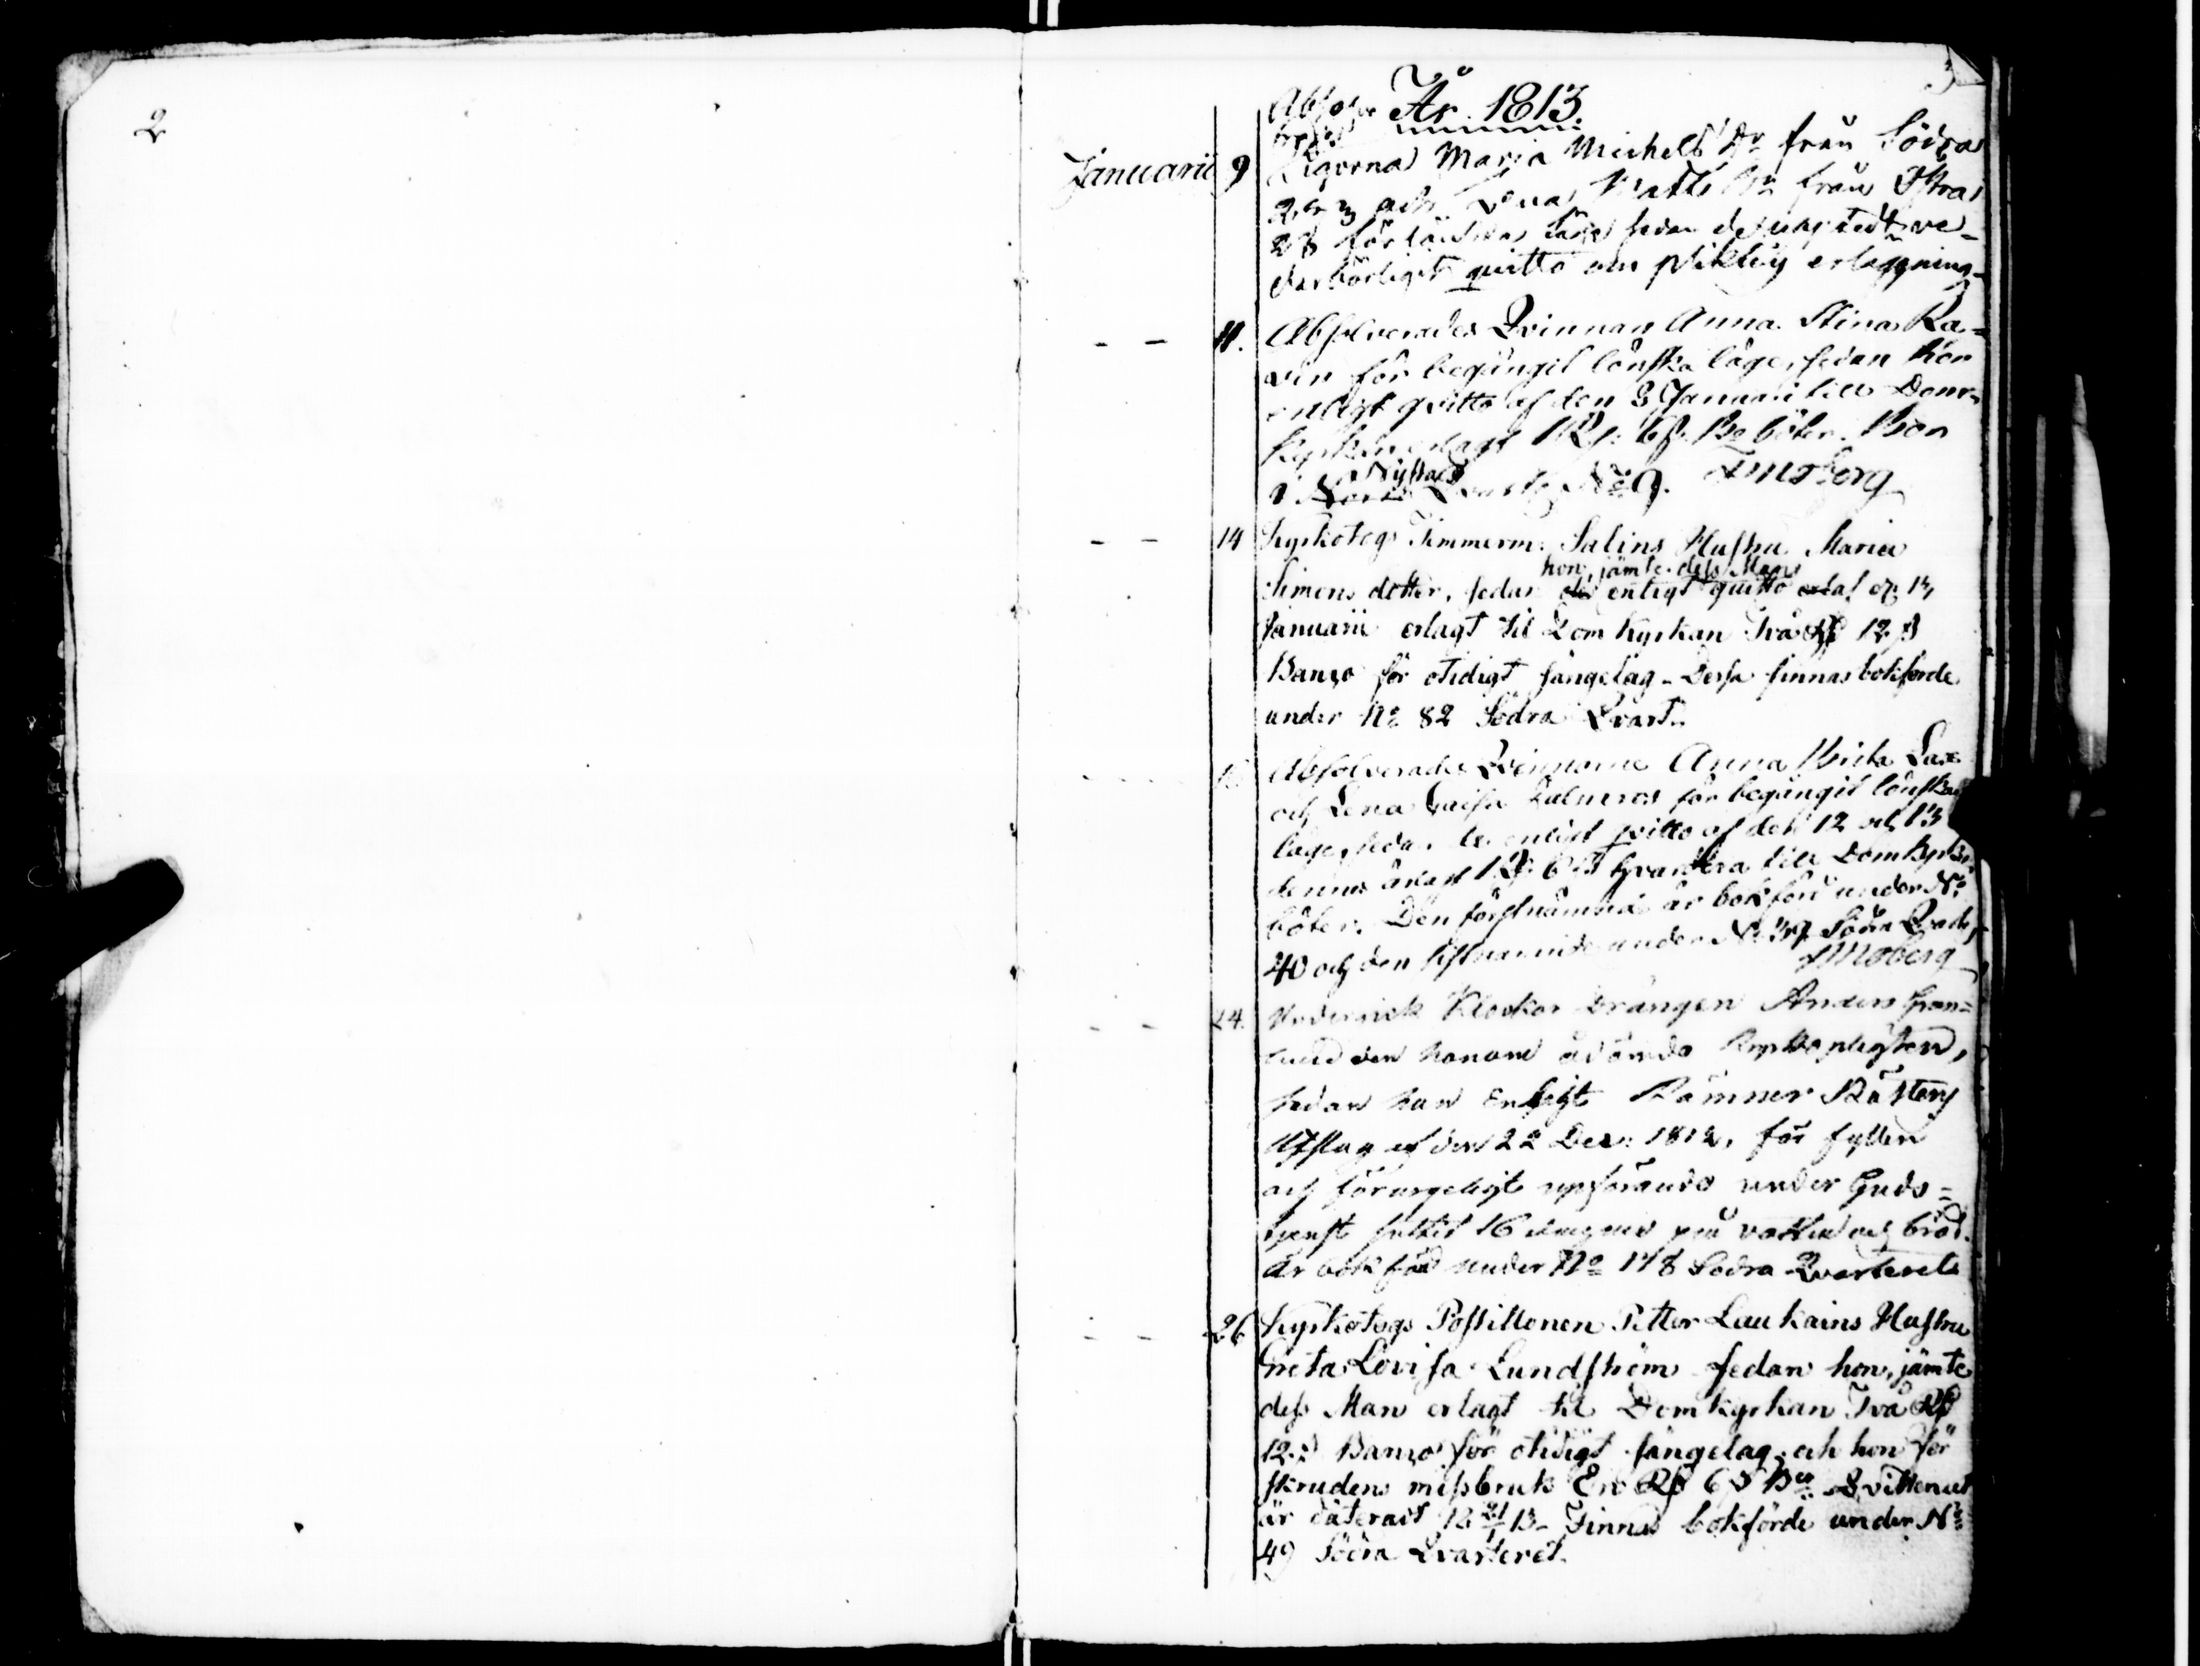 2
3
År 1813.
Januarii 9 Maria Michels Dr från Södra
och Lena Matts Dr från Östra
28 för sedan de
qvitto om erläggning
11. Absolverades Qvinnan Anna Stina Ra=
vin för begångit lönska läge, sedan hon
enligt qvitto af den 8 Januari till Dom=
kyrkan erlagt 1 Rd: 6 s. Bo böter. Bor
i Nystads Qvart. No 9. Fr Moberg
14 Kyrkotogs Timmerm: Salins Hustru Maria
hon, jämte dess Man
Simons dotter, sedan enligt qvitto af 13
Januarii erlagt til Domkyrkan Två Rd 12 s
Banco för otidigt sängelag. Dessa finnas bokförde
under No 82 Södra Qvart.
Absolverades Qvinnorne Anna Brita Sax
och Lena Caisa för begångit lönska
läge, sedan de enligt qvitto af den 12 och 13
dennes erlagt 1 Rd: 6 s hvardera till Domkyrkan
böter. Den förstnämnda är bokförd under No
40 och den sistnämnde under No Södra Qvart.
Moberg
24. Undergick Klockar Drängen Anders Gran=
lund den honom ådömda kyrkoplikten,
sedan han enligt Kämner Rättens
Utslag af den 22 Dec: 1812, för fylleri
och förargeligt uppförande under Guds=
tjenst suttit 16 dagar på vatten och bröd.
Är bokförd under No 148 Södra Qvarteret
26 Kyrkotogs Postillonen Petter Laukains Hustru
Greta Lovisa Lundström sedan hon, jämte
dess Man erlagt til Domkyrkan Två Rd
12 s Banco för otidigt sängelag, och hon för
skrudens missbruk En Rd 6 s Bco Qvittencet
är dateradt 18 21/1 13. Finnas bokförde under No
49 Södra Qvarteret.